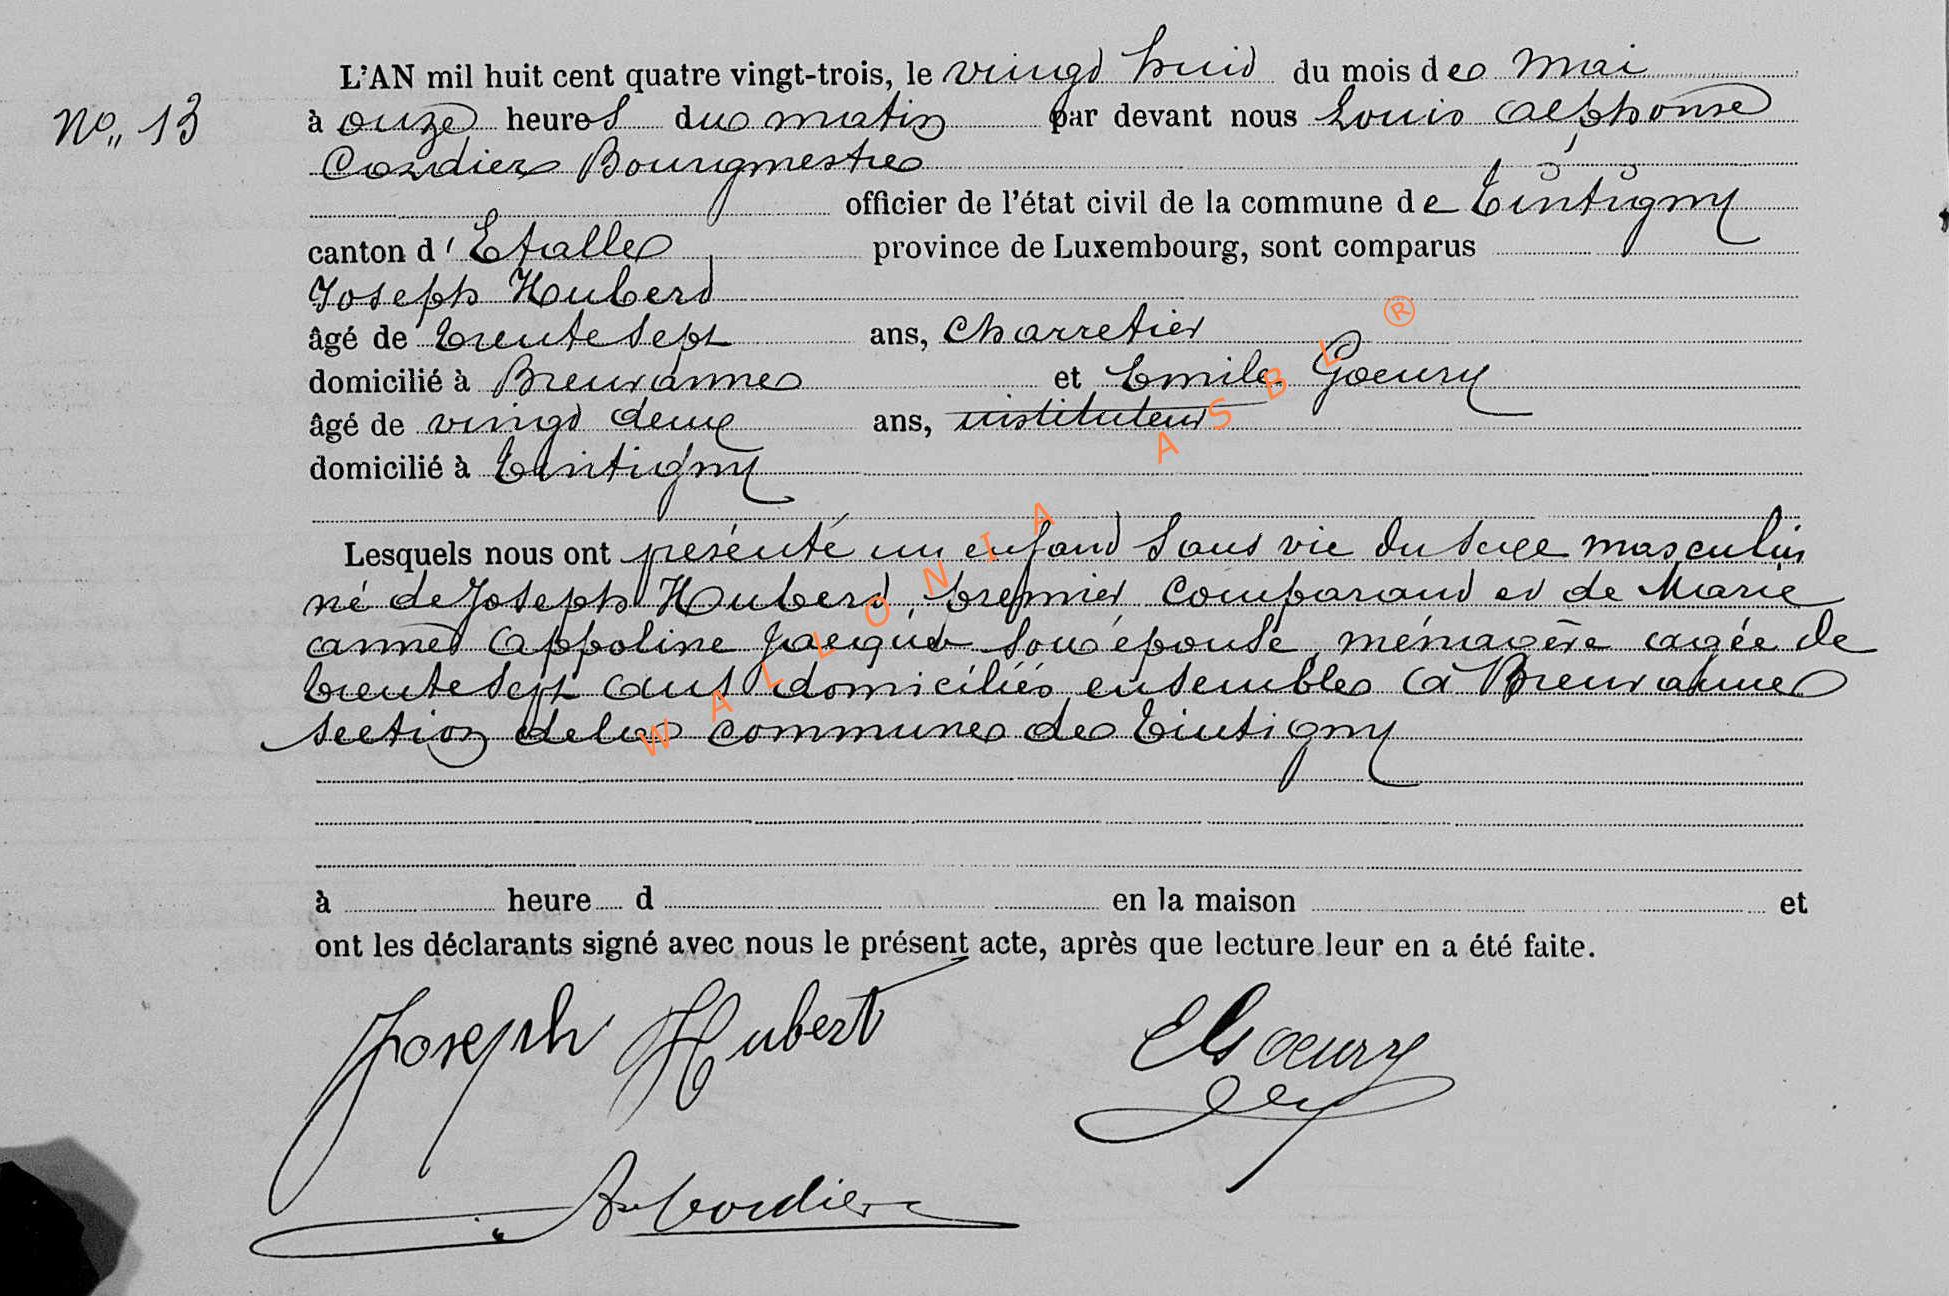 L'AN mil huit cent quatre vingt-trois, le vingt huit du mois de Mai
No 13
à onze heures du matin par devant nous Louis Alphonse
Cordier Bourgmestre
officier de l'état civil de la commune de Tintigny
canton d'Etalle province de Luxembourg, sont comparus
Joseph Hubert
âgé de trente sept ans, charretier
domicilié à Breuvanne et Emile Goeury
âgé de vingt deux ans, instituteur
domicilié à Tintigny
Lesquels nous ont présenté un enfant sans vie du sexe masculin
né de Joseph Hubert, premier comparant et de Marie
anne Appoline Jacquet son épouse, ménagère agée de
trente sept ans domiciliés ensembles à Breuvanne
section de la commune de Tintigny
à heure d en la maison et
ont les déclarants signé avec nous le présent acte, après que lecture leur en a été faite.
Joseph Hubert EGoeury
Cordier
WALLONIA ASBL ®